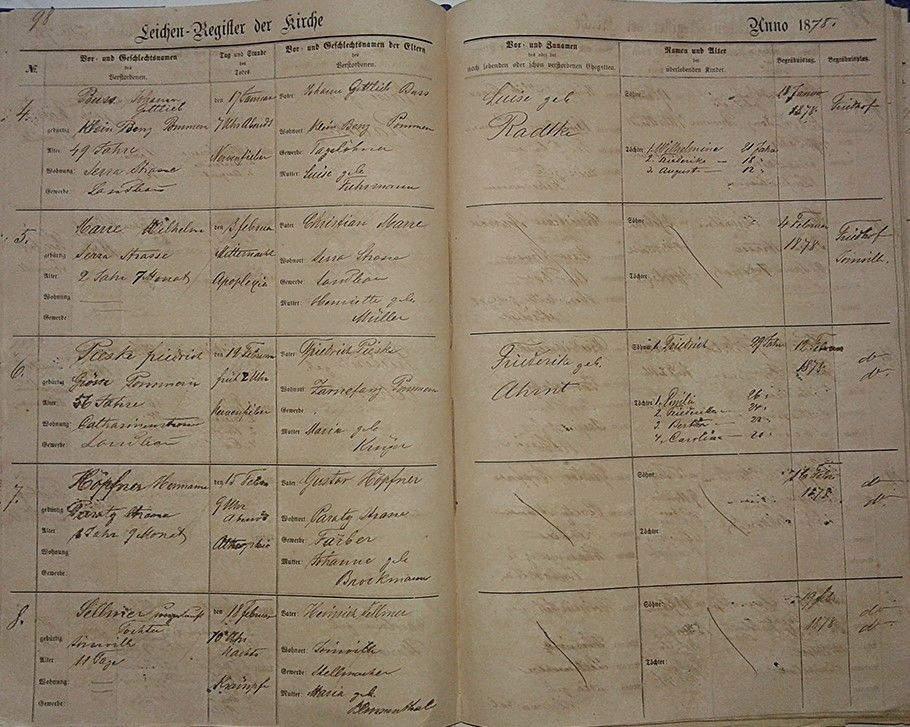 98
Leichen-Register der Kirche
Anno 1878.
№.
Vor- und Geschlechtsnamen
des
Verstorbenen.
Tag und Stunde
des
Todes
Vor- und Geschlechtsnamen der Eltern
des
Verstorbenen.
Vor- und Zunamen
des oder der
noch lebenden oder schon verstorbenen Ehegatten.
Namen und Alter
der
überlebenden Kinder.
Begräbnißtag.
Begräbnißplatz.
4.
Buss Johann
Gottlieb
gebürtig Klein Benz Pommern
Alter: 49 Jahre
Wohnung: Serra Strasse
Gewerbe: Landbau
den 17 Januar
7 Uhr Abends
Nervenfieber
Vater: Johann Gottlieb Buss
Wohnort: Klein Benz Pommern
Gewerbe: Tagelöhner
Mutter: Luise geb
Fuhrmann
Luise geb
Radtke
Söhne:
Töchter: 1. Wilhelmine 21 Jahre
2. Friederike — 18
3. August — 12
18 Januar
1878
Friedhof
5.
Marre Wilhelm
gebürtig Serra Strasse
Alter: 2 Jahr 7 Monat
Wohnung
Gewerbe:
den 3 Februar
Mitternacht
Apoplexia
Vater: Christian Marre
Wohnort: Serra Strasse
Gewerbe: Landbau
Mutter: Henriette geb
Müller
Söhne:
Töchter:
4 Februar
1878.
Friedhof
Joinville.
6.
Pieske Friedrich
gebürtig Pommern
Alter: 56 Jahre
Wohnung: Catharinenstrasse
Gewerbe: Landbau
den 12 Februar
früh 2 Uhr
Nervenfieber
Vater: Friedrich Pieske
Wohnort: Zarnefanz Pommern
Gewerbe:
Mutter: Maria geb
Krüger
Friederike geb.
Ahrnt
Söhne: 1. Friedrich 29 Jahre
Töchter: 1. Emilie 26
2. Friederike — 24
3. Bertha — 22
4. Caroline — 20
12 Februar
1878.
do
do.
7.
Höpfner Hermann
gebürtig Paraty Strasse
Alter 1 Jahr 9 Monat
Wohnung
Gewerbe:
den 15 Febr
9 Uhr
Abends
Athrophie
Vater: Gustav Höpfner
Wohnort: Paraty Strasse
Gewerbe: Färber
Mutter: Johanne geb
Brockmann
Söhne:
Töchter:
16 Febr
1878.
do
do.
8.
Sellmer
Tochter
gebürtig Joinville
Alter 11 Tage
Wohnung:
Gewerbe:
den 18 Februar
10 Uhr
Nachts
Krämpfe
Vater: Heinrich Sellmer
Wohnort: Joinville
Gewerbe: Stellmacher
Mutter: Maria geb.
Blummenthal
Söhne:
Töchter:
19 Febr
1878
do
do.